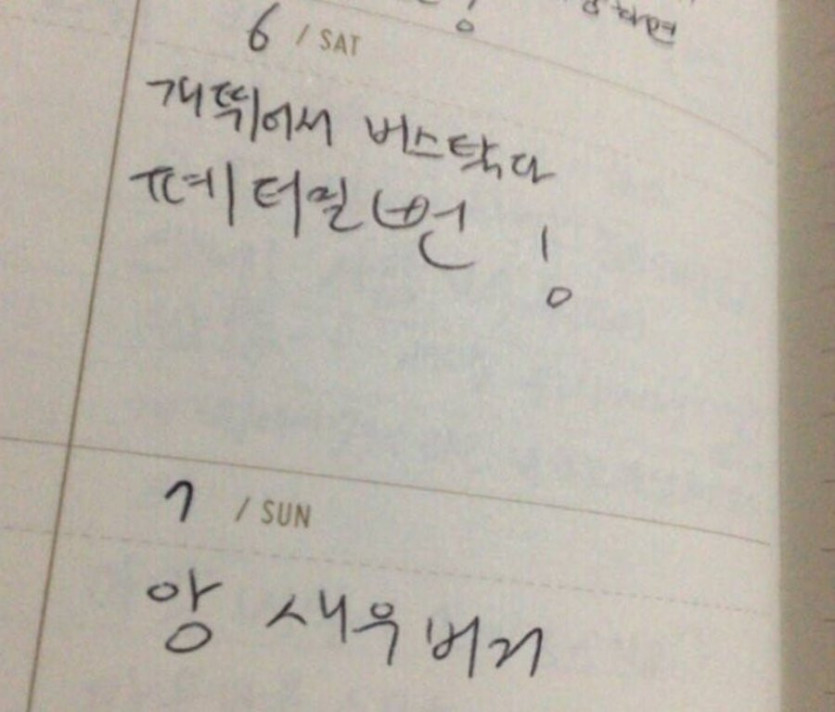 6 / SAT
개뛰어서 버스탔다
폐 터질뻔 !
7 / SUN
앙 새우버거